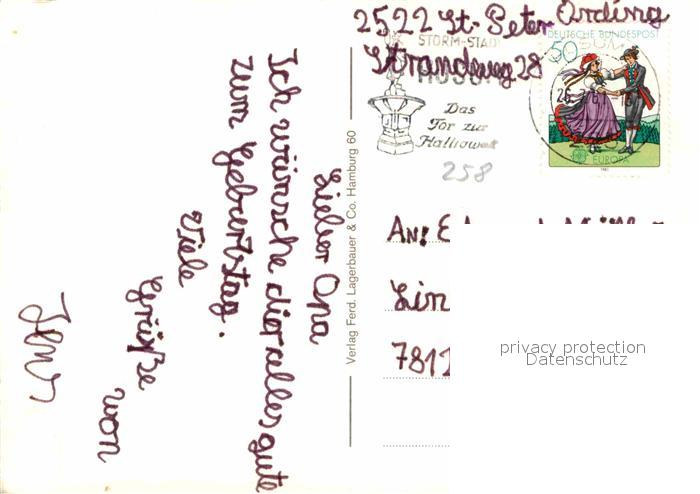 2522 St. Peter Ording
Strandweg 28
STORM-STADT
HUSUM
Das
Tor zur
Halligwelt
DEUTSCHE BUNDESPOST
50
EUROPA
258
Lieber Opa
Ich wünsche dir alles gute
zum Geburtstag.
Viele
Grüße
von
Verlag Ferd. Lagerbauer & Co. Hamburg 60
An: E
Lin
7812
privacy protection
Datenschutz